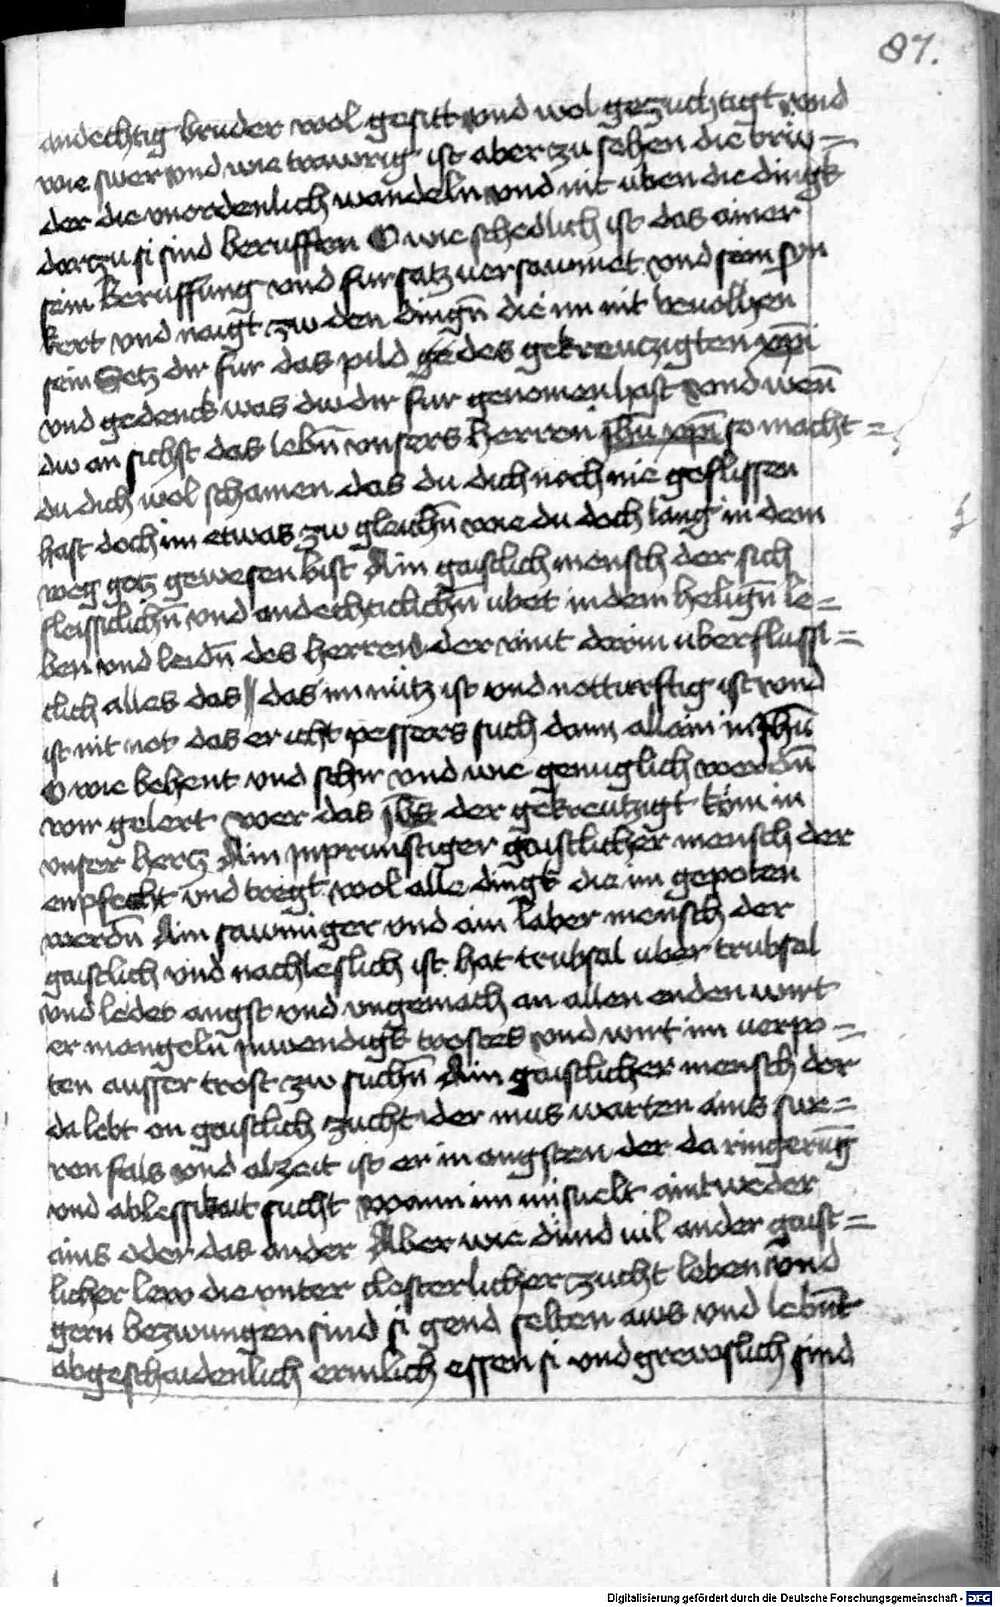 87.
andechtig bruder wol gesitt vnd wol gezuchtigt vnd
wie swer vnd wie trawrig ist aber zu sehen die brü=
der die vnordenlich wandeln vnd nit üben die dingk
dorczu si sind berufften O wie schedlich ist das ainer
sein beruffung vnd fursatz versawmet vnd sein syn
kert vnd naigt zw den dingn̄ die im nit beuolhen
sein Setz dir fur das pild gedes gekreuczigten xp̄i
vnd gedenck was dw dir fur genomen hast vnd wen̄
dw an sichst das lebn̄ vnsers herren jhū xp̄i so macht=
du dich wol schamen das du dich noch nie geflissen
hast doch im etwas zw gleichn̄ wie du doch lang in dem
weg gotz gewesen bist Ain gaistlich mensch der sich
fleissiclichn̄ vnd andechticlichn̄ übet in dem helign̄ le=
ben vnd leidn̄ des herren der vint dorin uberflussi=
clich alles das das im nütz ist vnd notturftig ist vnd
ist nit not das er icht pessers such dann allain in jhū
O wie behent vnd schir vnd wie genuglich werdn̄
wir gelert wer das jhs der gekreutzigt köm in
vnser hertz Ain inprunstiger gaistlicher mensch der
enpfecht vnd tregt wol alle dingk die im gepoten
werdn̄ Ain sawmiger vnd ain laber mensch der
gaistlich vnd nachleslich ist hat trubsal uber trubsal
vnd leidet angst vnd vngemach an allen enden wirt
er mangeln̄ inwendigs trostes vnd wirt im verpo=
ten ausser trost zw suchn̄ Ain gaistlicher mensch der
da lebt on gaistlich zucht der mus warten ains swe=
ren fals vnd alzeit ist er in angsten der da ringerung
vnd ablessikait sucht wann im misuelt aintweder
ains oder das ander Aber wie dund vil ander gaist=
licher lew die vnter closterlicher zucht leben vnd
gern bezwungen sind si gend selten aws vnd lebnt
abgeschaidenlich ermlich essen si vnd grewslich sind
Digitalisierung gefördert durch die Deutsche Forschungsgemeinschaft - DFG